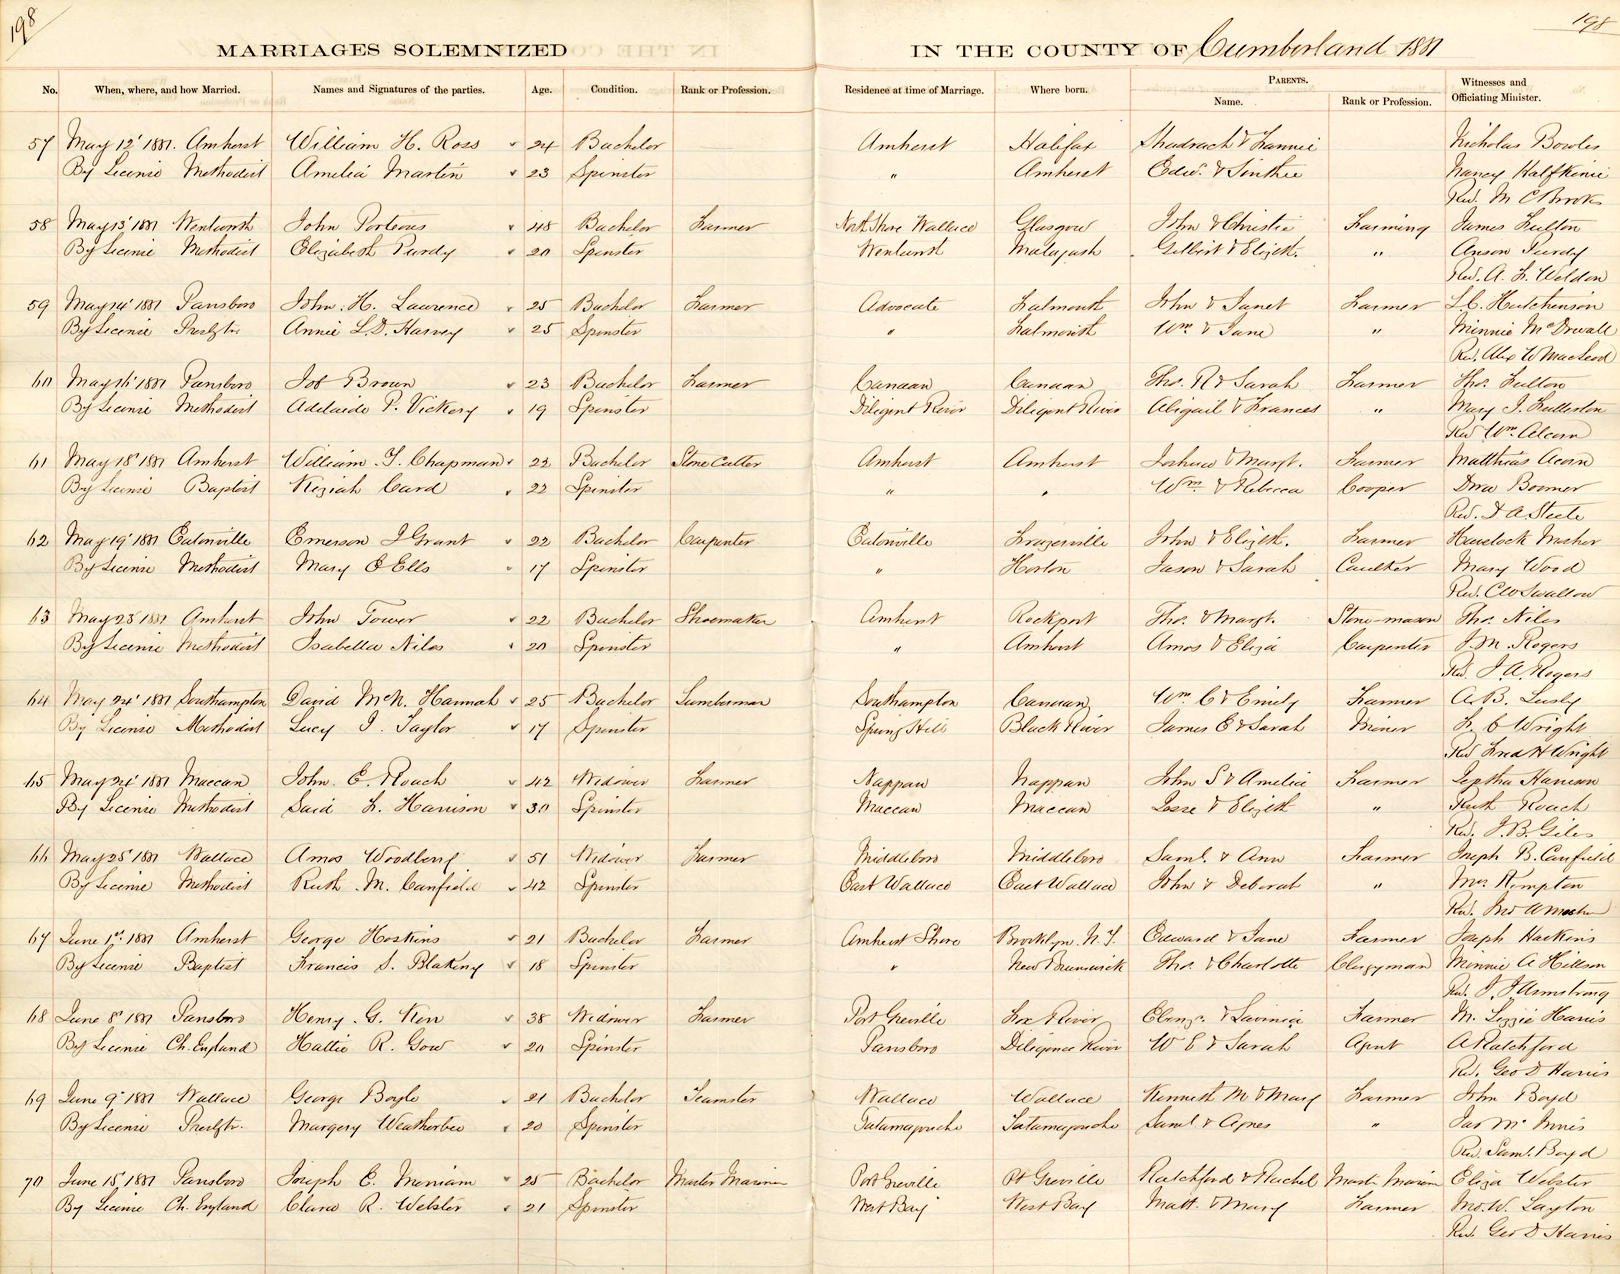 198
198
MARRIAGES SOLEMNIZED IN THE COUNTY OF Cumberland 1881
No. When, where, and how Married. Names and Signatures of the parties. Age. Condition. Rank or Profession. Residence at time of Marriage. Where born. PARENTS. Name. Rank or Profession. Witnesses and Officiating Minister.
57 May 12' 1881. Amherst William H. Ross 24 Bachelor Amherst Halifax Shadrach & Fannie Nicholas Bowles
By License Methodist Amelia Martin 23 Spinster " Amherst Edw. & Sinthie Nancy Halfkinie
Rev. M C Brooks
58 May 13' 1881 Wentworth John Porteous 48 Bachelor Farmer North Shore Wallace Glasgow John & Christie Farming James Fulton
By License Methodist Elizabeth Purdy 20 Spinster Wentworst Malagash Gilbert & Elizth. " Anson Purdy
Rev. A. F. Weldon
59 May 14' 1881 Parrsboro John H. Laurence 25 Bachelor Farmer Advocate Falmouth John & Janet Farmer L. C. Hutchinson
By License Presbytr. Annie L. D. Harvey 25 Spinster " Falmouth Wm & Jane " Minnie McDowall
Rev. Alex W MacLeod
60 May 16' 1881 Parrsboro Job Brown 23 Bachelor Farmer Canaan Canaan Tho. R & Sarah Farmer Tho. Fulton
By License Methodist Adelaide P. Vickery 19 Spinster Diligent River Diligent River Abigail & Frances " Mary J. Fullerton
Rev Wm. Alcorn
61 May 18' 1881 Amherst William F. Chapman 22 Bachelor Stone Cutter Amherst Amherst Joshua & Margt. Farmer Matthias Acorn
By License Baptist Keziah Card 22 Spinster " " Wm. & Rebecca Cooper Boomer
Rev. D A Steele
62 May 19' 1881 Eatonville Emerson J Grant 22 Bachelor Carpenter Eatonville Frazerville John & Elizth. Farmer Havelock
By License Methodist Mary E Ells 17 Spinster " Horton Jason & Sarah Caulker Mary Wood
Rev. C W Swallow
63 May 23' 1881 Amherst John Tower 22 Bachelor Shoemaker Amherst Rockport Tho. & Margt. Stone-mason Tho. Niles
By License Methodist Isabella Niles 20 Spinster " Amherst Amos & Eliza Carpenter J. M. Rogers
Rev. J. A. Rogers
64 May 24' 1881 Southampton David McN. Hannah 25 Bachelor Lumberman Southampton Canaan Wm C & Emily Farmer A. B. Lusby
By License Methodist Lucy J. Taylor 17 Spinster Spring Hill Black River James E & Sarah Miner F. C Wright
Rev Fred H Wright
65 May 24' 1881 Maccan John E. Roach 42 Widower Farmer Nappan Nappan John S & Amelia Farmer Jeptha Harrison
By License Methodist Said F. Harrison 30 Spinster Maccan Maccan Jesse & Elizth " Ruth Roach
Rev. J. B. Giles
66 May 25' 1881 Wallace Amos Woodbury 51 Widower Farmer Middleboro Middleboro Saml. & Ann Farmer Joseph B. Canfield
By License Methodist Ruth M. Canfield 42 Spinster East Wallace East Wallace John & Deborah " Mrs Kempton
Rev. Jno W
67 June 1st. 1881 Amherst George Hoskins 21 Bachelor Farmer Amherst Shore Brooklyn. N.Y. Edward & Jane Farmer Joseph Harkins
By License Baptist Francis S. Blakeny 18 Spinster " New Brunswick Tho. & Charlotte Clergyman Minnie A Hillson
Rev. J. J Armstrong
68 June 8' 1881 Parrsboro Henry G. Kerr 38 Widower Farmer Port Greville Fox River Ebenzr. & Lavinia Farmer M. Lizzie Harris
By License Ch. England Hattie R. Gow 20 Spinster Parrsboro Diligence River W E & Sarah Agent A Ratchford
Rev. Geo D Harris
69 June 9' 1881 Wallace George Boyle 21 Bachelor Teamster Wallace Wallace Kenneth M & Mary Farmer John Boyd
By License Presbytr. Margery Weatherbie 20 Spinster Tatamagouche Tatamagouche Saml & Agnes " Jas McInnis
Rev. Saml. Boyd
70 June 15' 1881 Parrsboro Joseph E. Merriam 25 Bachelor Master Mariner Port Greville Pt Greville Ratchford & Rachel Mastr Mariner Eliza Webster
By License Ch. England Clara R. Webster 21 Spinster West Bay West Bay Matt. & Mary Farmer Jno. W. Layton
Rev. Geo D Harris